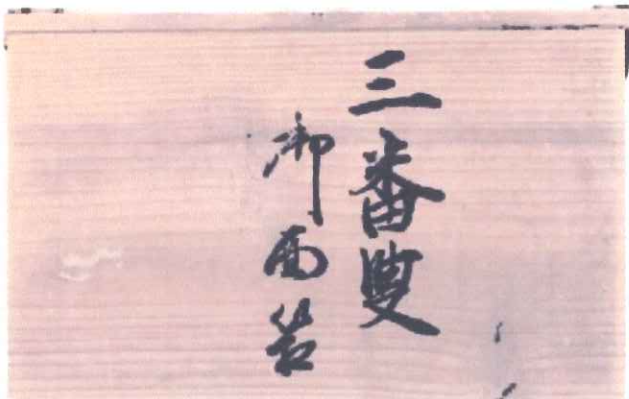 三番叟
御面箱